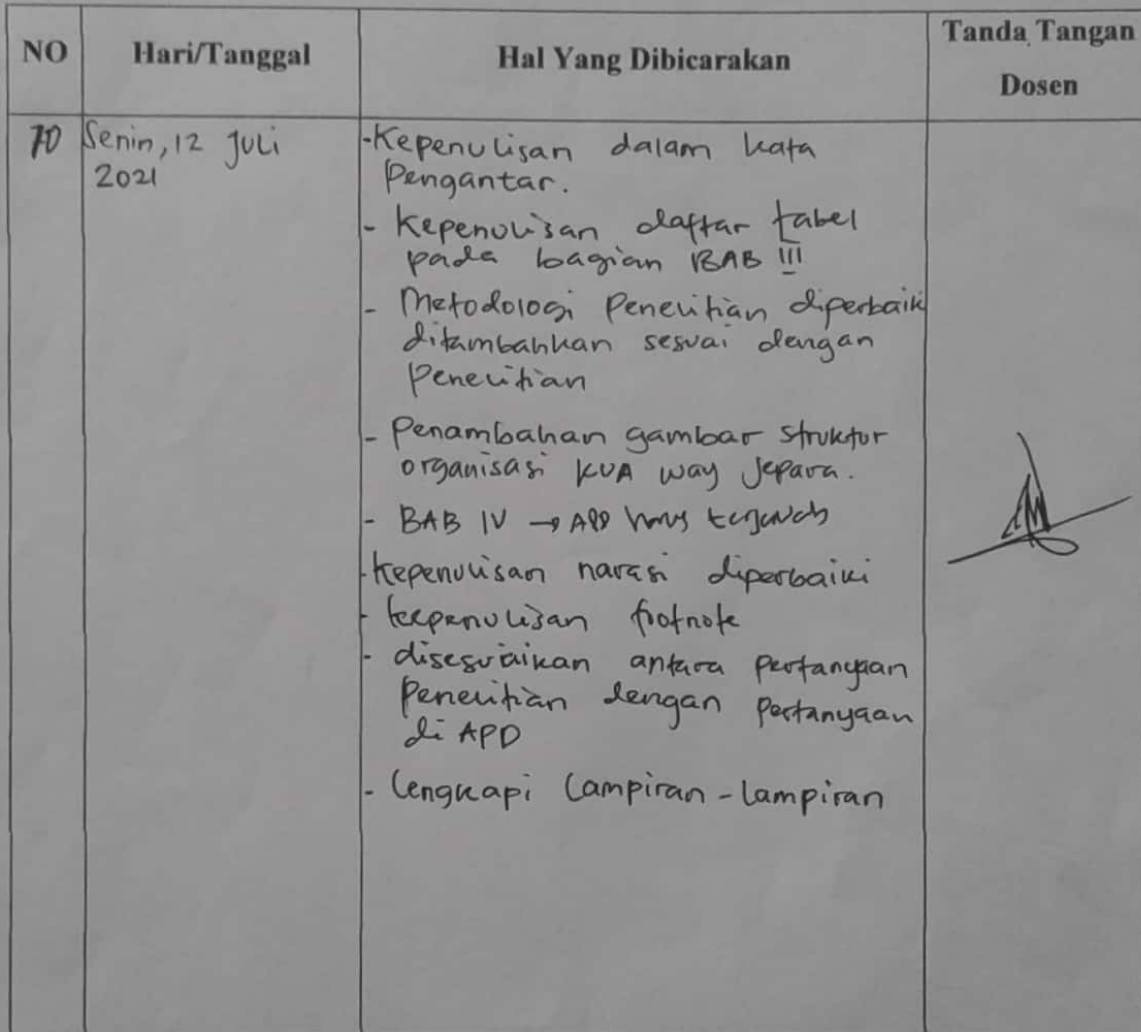 NO Hari/Tanggal Hal Yang Dibicarakan Tanda Tangan
Dosen
10 Senin, 12 Juli
2021
-Kepenulisan dalam kata
Pengantar.
- Kepenulisan daftar tabel
pada bagian BAB III
- Metodologi Penelitian diperbaiki
ditambahkan sesuai dengan
Penelitian
- Penambahan gambar struktur
organisasi KUA way Jepara.
- BAB IV → APD harus terjawab
-Kepenulisan narasi diperbaiki
- kepenulisan footnote
- disesuaikan antara pertanyaan
Penelitian dengan pertanyaan
di APD
- Lengkapi Lampiran-lampiran